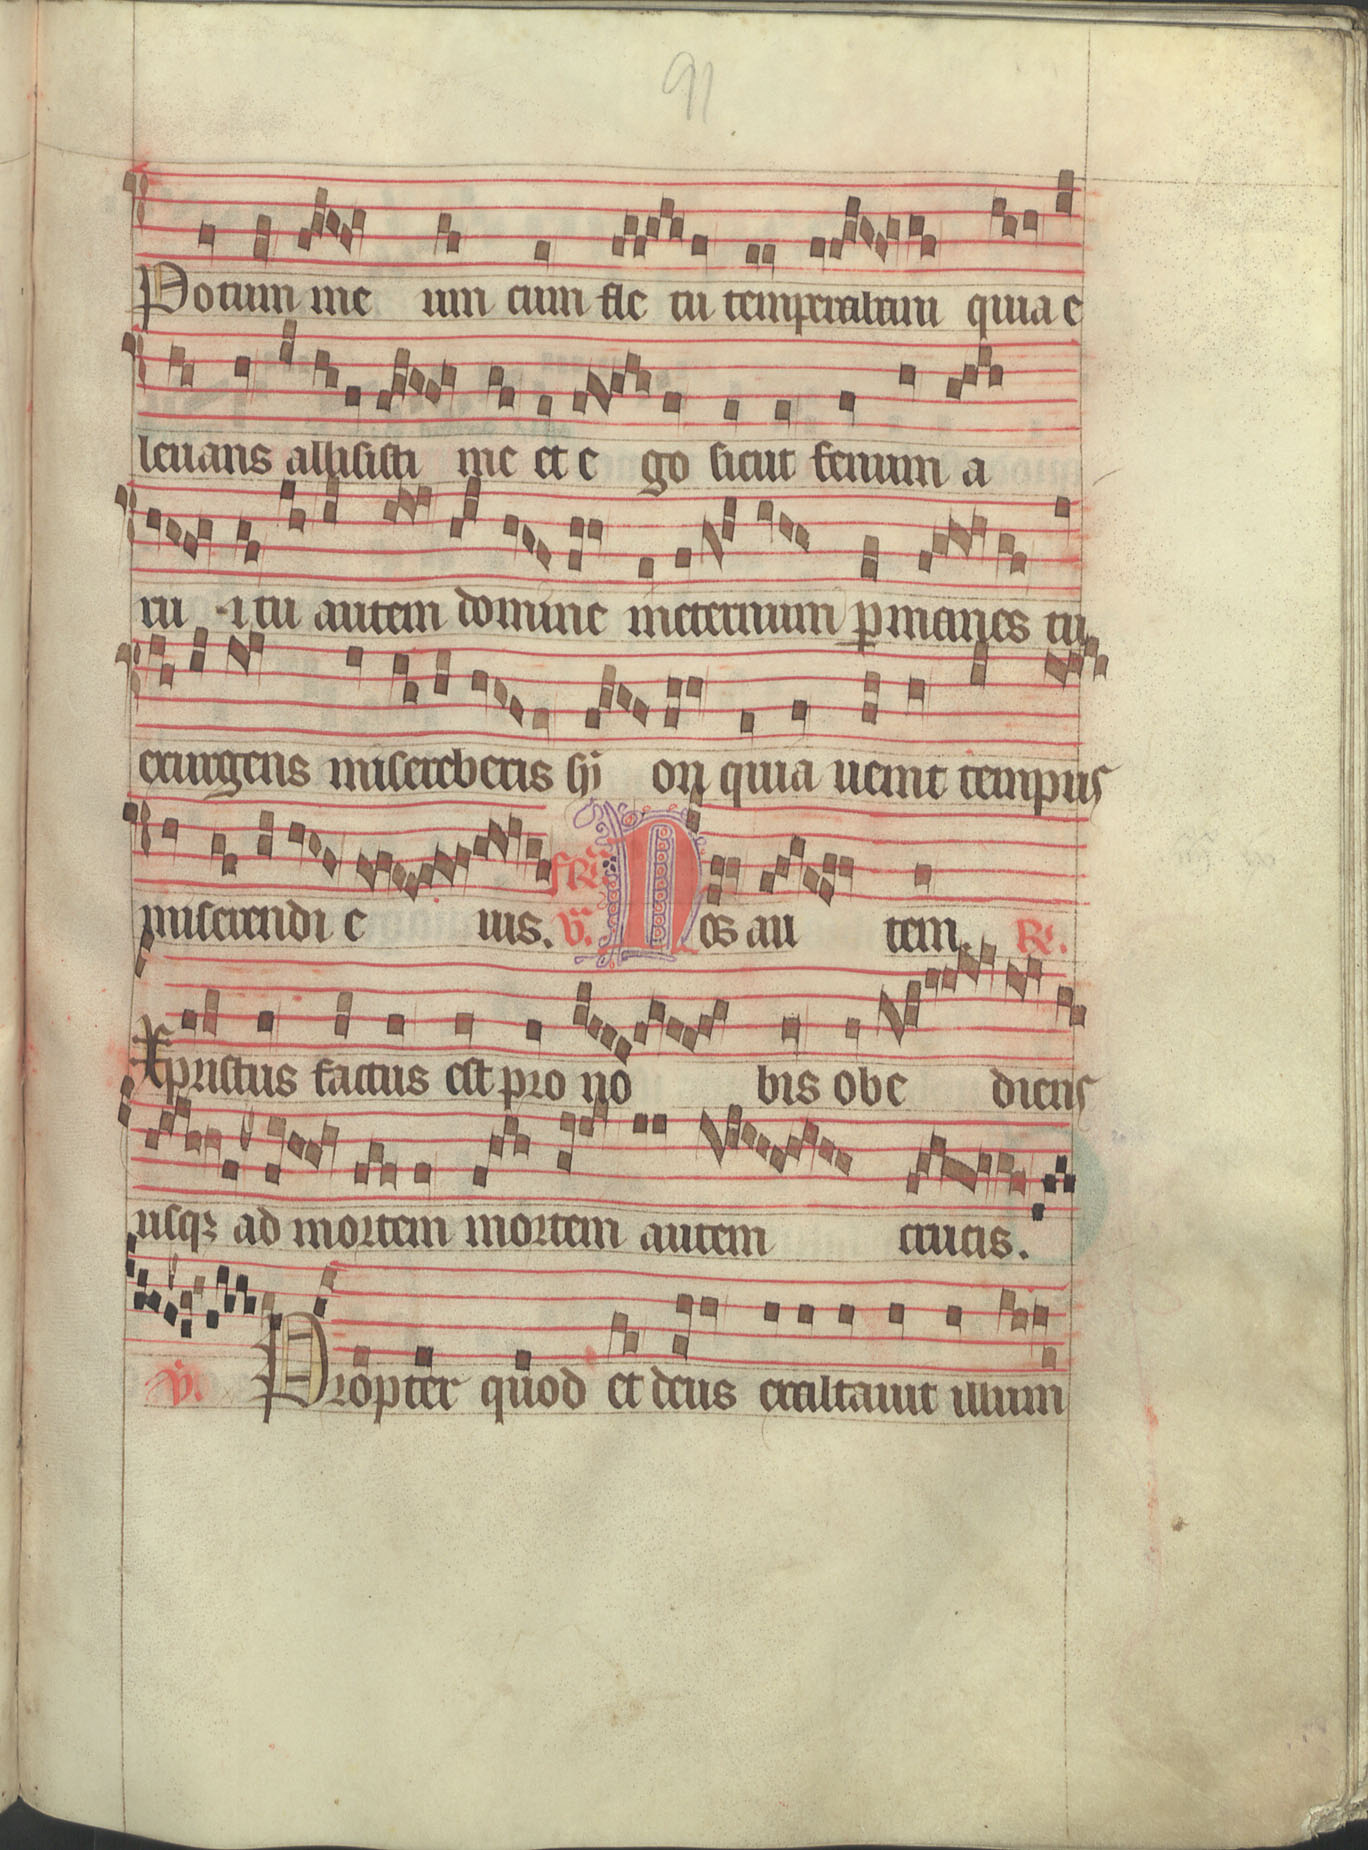 91
Potum me um cum fle tu temperabam quia e
leuans allisisti me et e go sicut fenum a
rui i tu autem domine ineternum ꝑmanes tu
exurgens misereberis sy on quia uenit tempus
miserendi e ius. V. Nos au tem. R.
Xpristus factus est pro no bis obe diens
usqꝫ ad mortem mortem autem crucis.
V. Propter quod et deus exaltauit illum